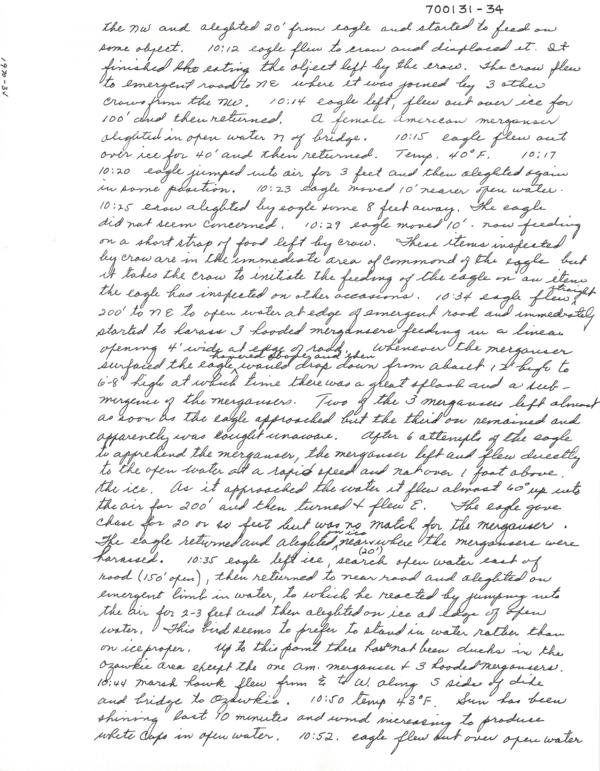 700131-34
the NW and alighted 20' from eagle and started to feed on
some object. 10:12 eagle flew to crow and displaced it. It
finished the eating the object left by the crow. The crow flew
to emergent road to NE where it was joined by 3 other
crows from the NW. 10:14 eagle left, flew out over ice for
100' and then returned. A female american merganser
alighted in open water N of bridge. 10:15 eagle flew out
over ice for 40' and then returned. Temp. 40°F. 10:17
10:20 eagle jumped into air for 3 feet and then alighted again
in same position. 10:23 eagle moved 10' nearer open water.
10:25 crow alighted by eagle some 8 feet away. The eagle
did not seem concerned. 10:29 eagle moved 10' - now feeding
on a short strap of food left by crow. These items inspected
by crow are in the immediate area of command of the eagle but
it takes the crow to initiate the feeding of the eagle on an item
the eagle has inspected on other occasions. 10:34 eagle flew straight
200' to NE to open water at edge of emergent road and immediately
started to harass 3 hooded mergansers feeding in a linear
opening 4' wide at edge of road. Whenever the merganser
surfaced the eagle hovered above and then would drop down from about 12' high to
6-8' high at which time there was a great splash and a sub-
mergence of the mergansers. Two of the 3 mergansers left almost
as soon as the eagle approached but the third one remained and
apparently was caught unaware. After 6 attempts of the eagle
to apprehend the merganser, the merganser left and flew directly
to the open water at a rapid speed and not over 1 foot above
the ice. As it approached the water it flew almost 60° up into
the air for 200' and then turned & flew E. The eagle gave
chase for 20 or so feet but was no match for the merganser.
The eagle returned and alighted on ice near (20') where the mergansers were
harassed. 10:35 eagle left ice, search open water east of
road (150' open), then returned to near road and alighted on
emergent limb in water, to which he reacted by jumping into
the air for 2-3 feet and then alighted on ice at edge of open
water. This bird seems to prefer to stand in water rather than
on ice proper. Up to this point there has not been ducks in the
Ozawkie area except the one am. merganser & 3 hooded mergansers.
10:44 marsh hawk flew from E to W. along S side of dike
and bridge to Ozawkie. 10:50 temp 43°F. Sun has been
shining last 10 minutes and wind increasing to produce
white caps in open water. 10:52. eagle flew out over open water